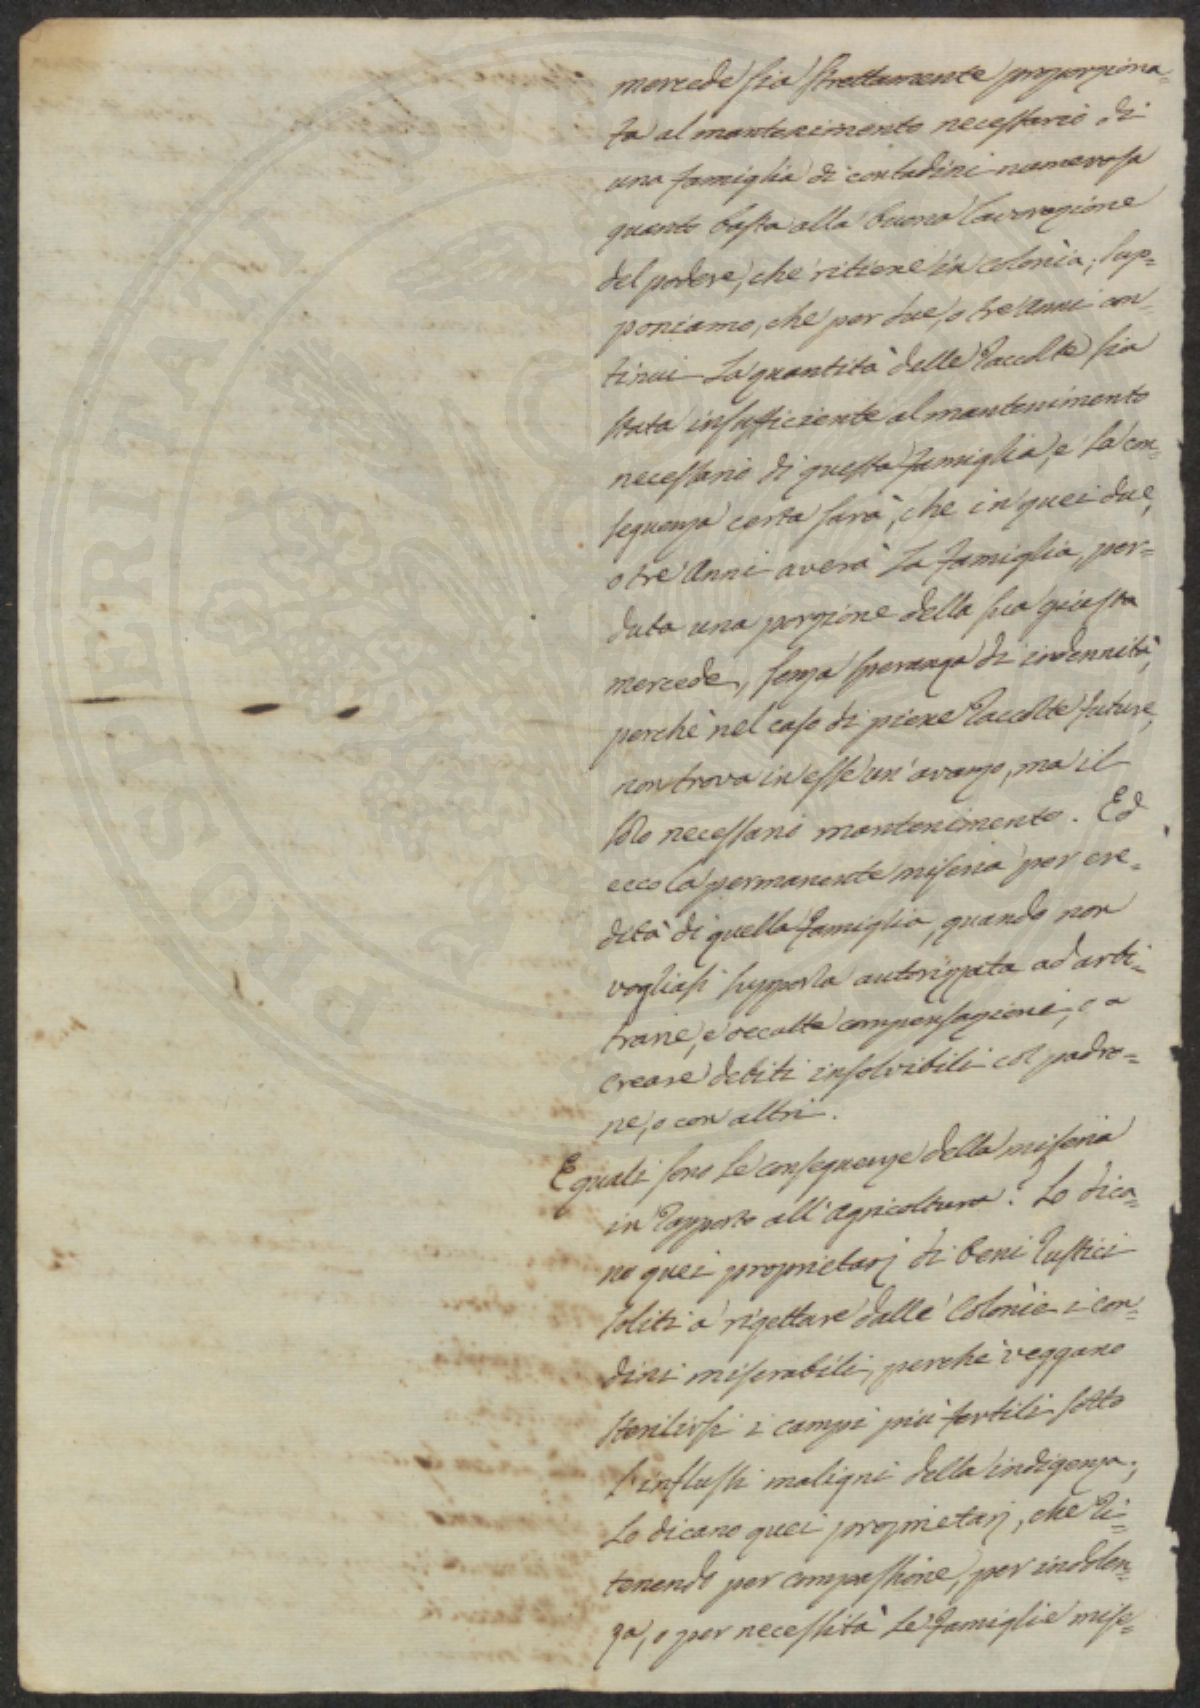 mercede sia strettamente proporziona=
ta al mantenimento necessario di
una famiglia di contadini numerosa
quanto basta alla buona lavorazione
del podere, che ritiene in colonìa; sup=
poniamo, che per due, o tre anni con=
tinui la quantità delle Raccolte sia
stata insufficiente al mantenimento
necessario di questa famiglia, e la con=
seguenza certa sarà, che in quei due,
o tre Anni averà la famiglia per=
duta una porzione della sua giusta
mercede, senza speranza di indennità,
perchè nel caso di piene Raccolte future,
non trova in esse un' avanzo, ma il
solo necessario mantenimento. Ed
ecco la permanente miseria per ere=
dità di quella famiglia, quando non
vogliasi supporla autorizzata ad arbi=
trarie, e occulte compensazioni, o a
creare debiti insolvibili col padro=
ne, o con altri.
E quali sono le conseguenze della miseria
in Rapporto all' Agricoltura? Lo dica=
no quei proprietarj di beni Rustici
soliti a rigettare dalle Colonìe i con=
dini miserabili, perchè veggano
sterilirsi i campi più fertili sotto
l' influssi maligni della indigenza;
Lo dicano quei proprietarj, che Ri=
tenendo per compassione, per indolen=
za, o per necessità le famiglie mise=
PROSPERITATI